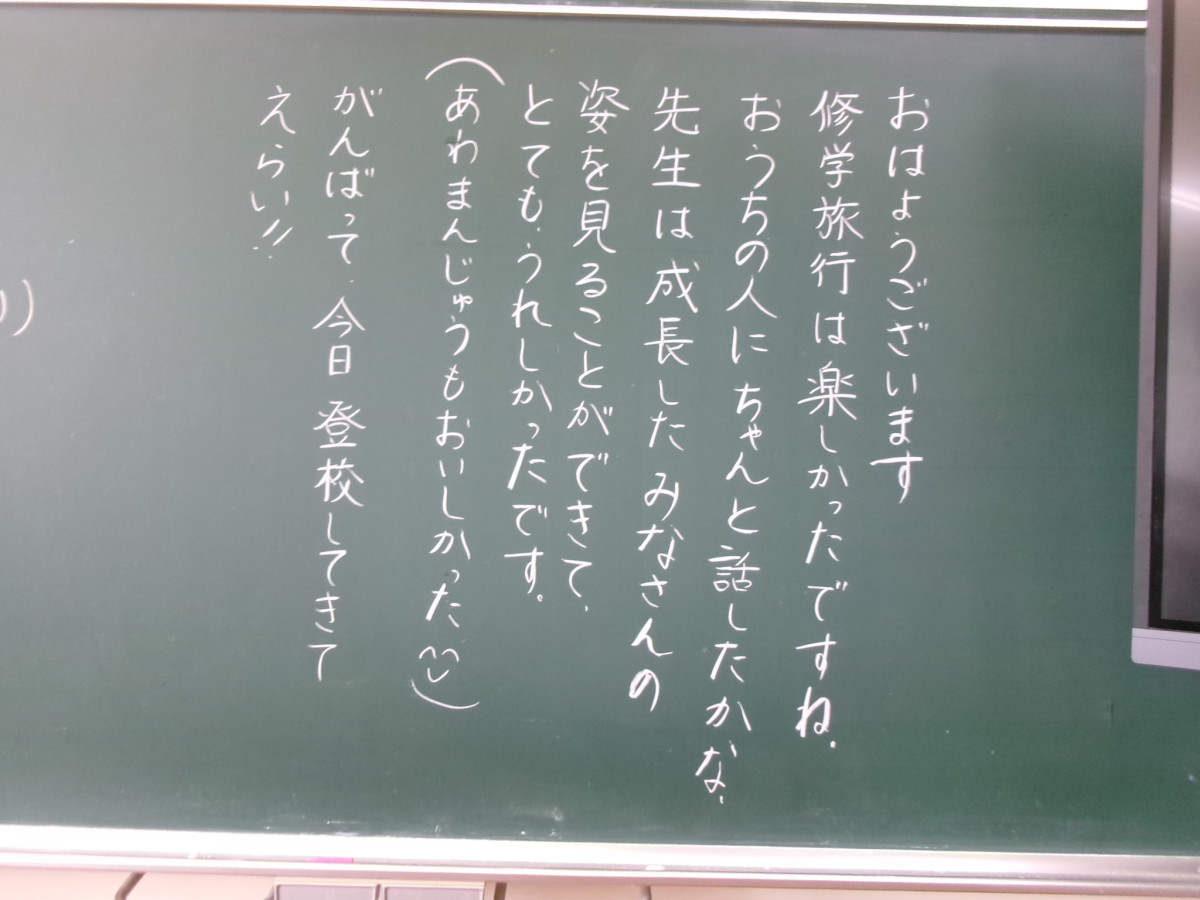 おはようございます
修学旅行は楽しかったですね.
おうちの人にちゃんと話したかな.
先生は成長したみなさんの
姿を見ることができて、
とても、うれしかったです。
(あわまんじゅうもおいしかった^^)
がんばって、今日登校してきて
えらい!!